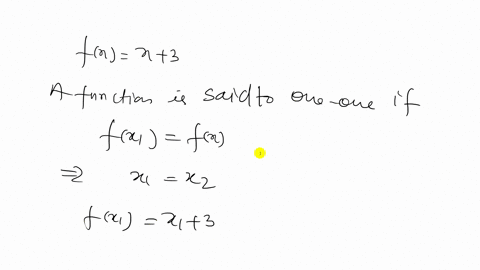 f(x) = x+3
A function is said to one-one if
f(x₁) = f(x)
⇒ x₁ = x₂
f(x₁) = x₁+3